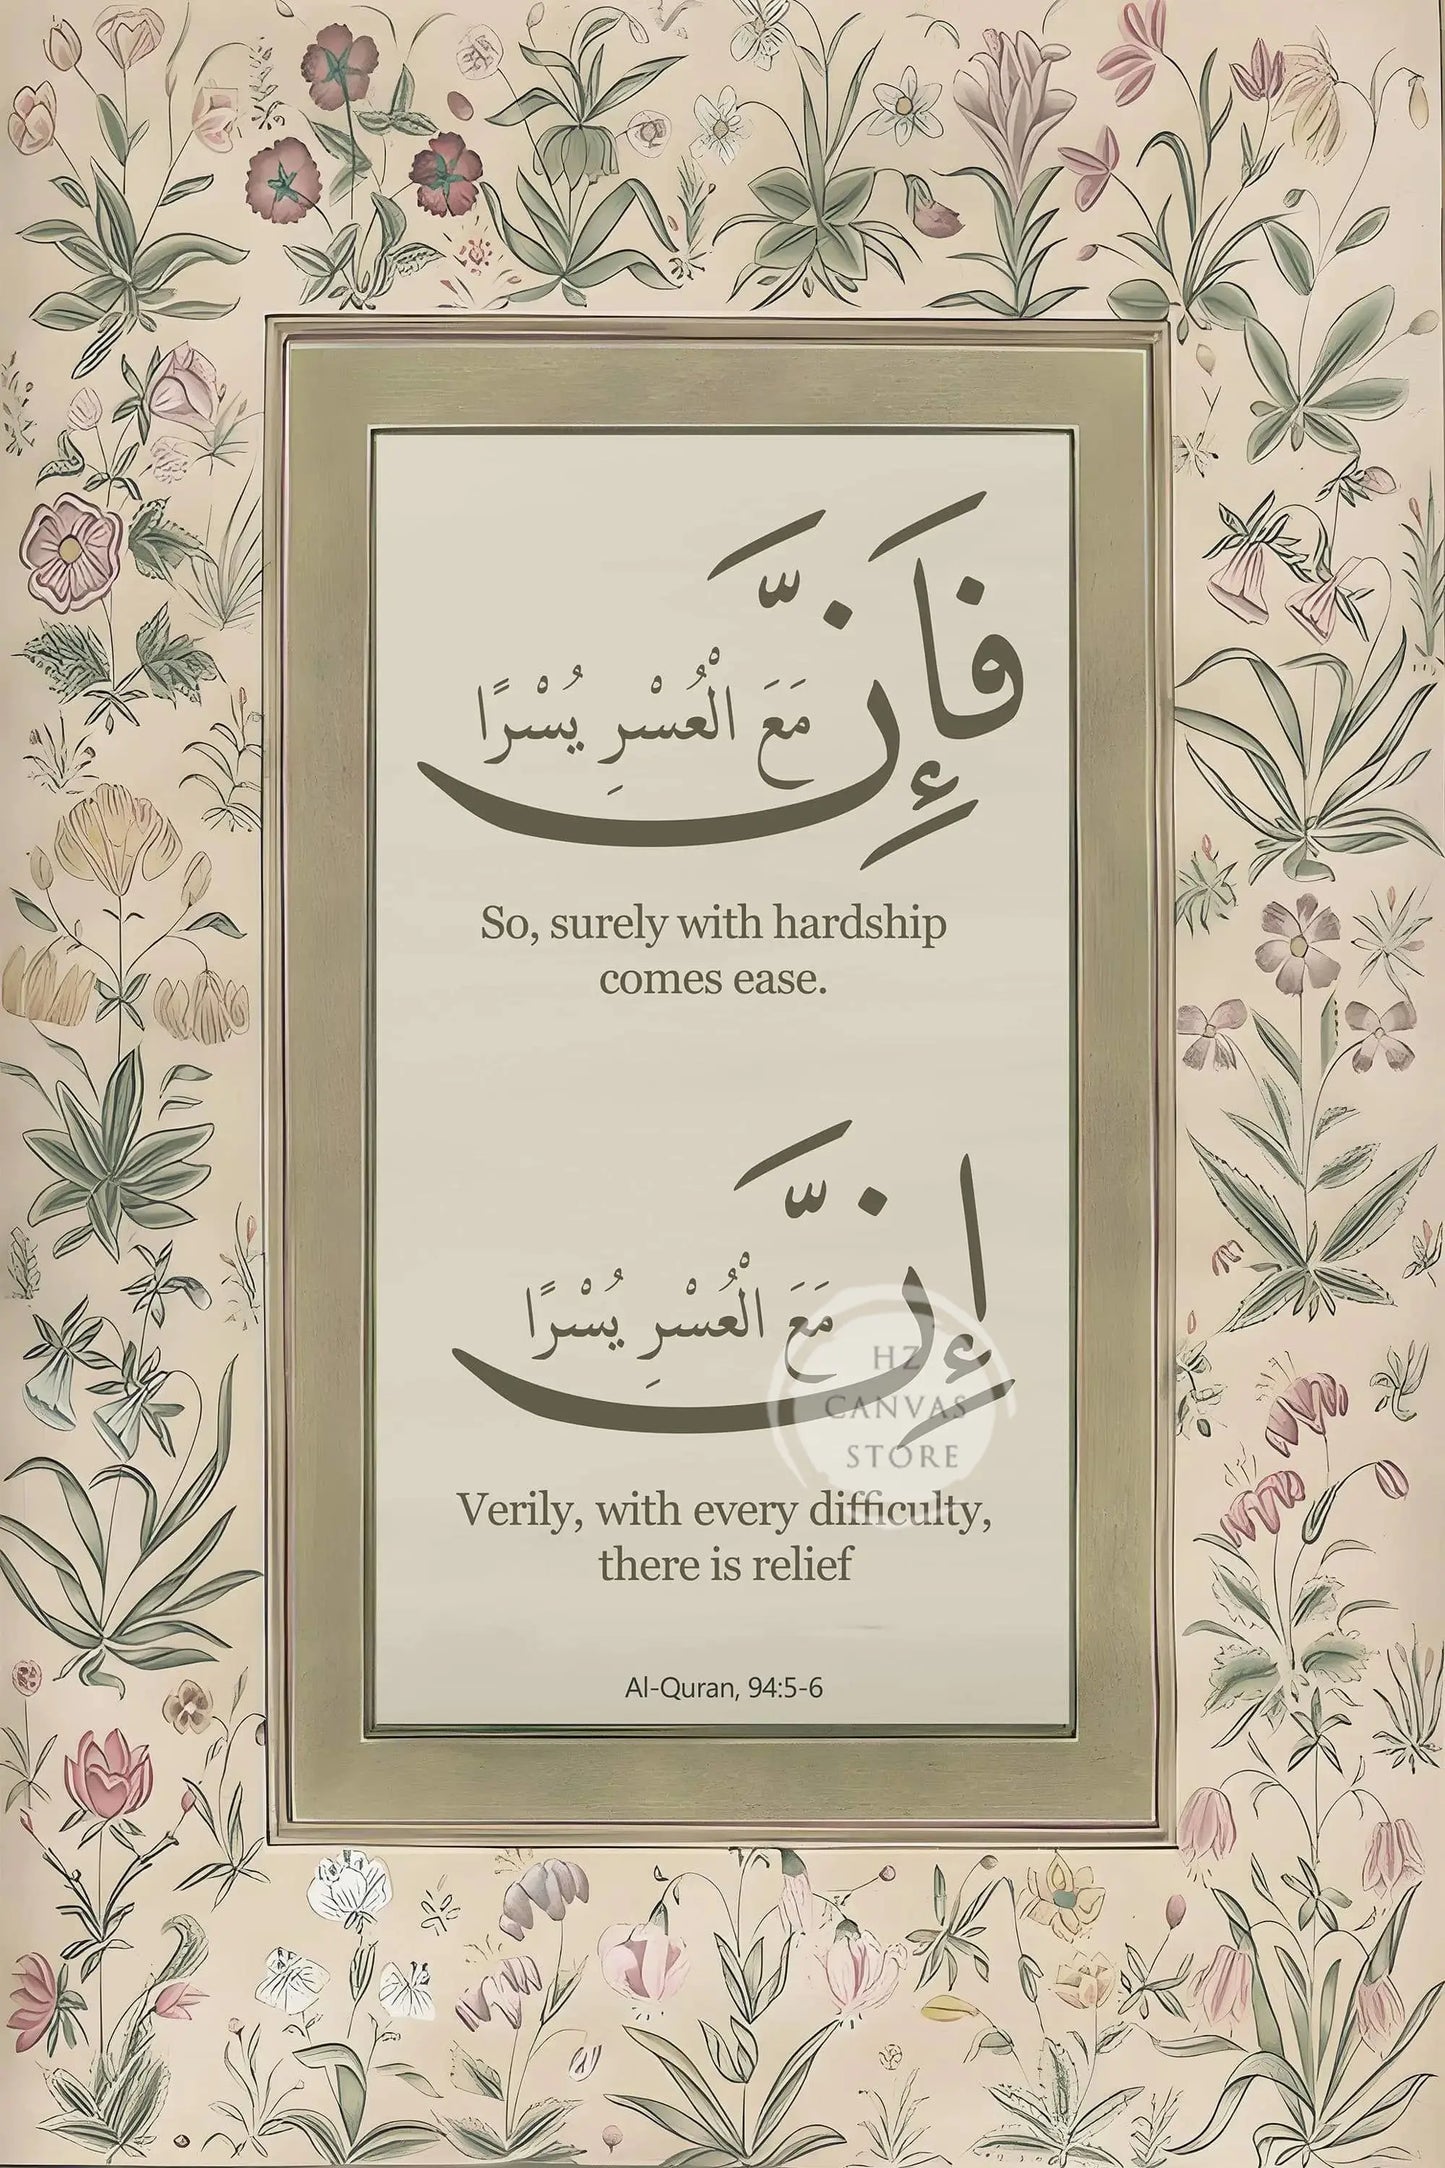 فَإِنَّ مَعَ الْعُسْرِ يُسْرًا
So, surely with hardship
comes ease.
إِنَّ مَعَ الْعُسْرِ يُسْرًا
HZ
CANVAS
STORE
Verily, with every difficulty,
there is relief
Al-Quran, 94:5-6